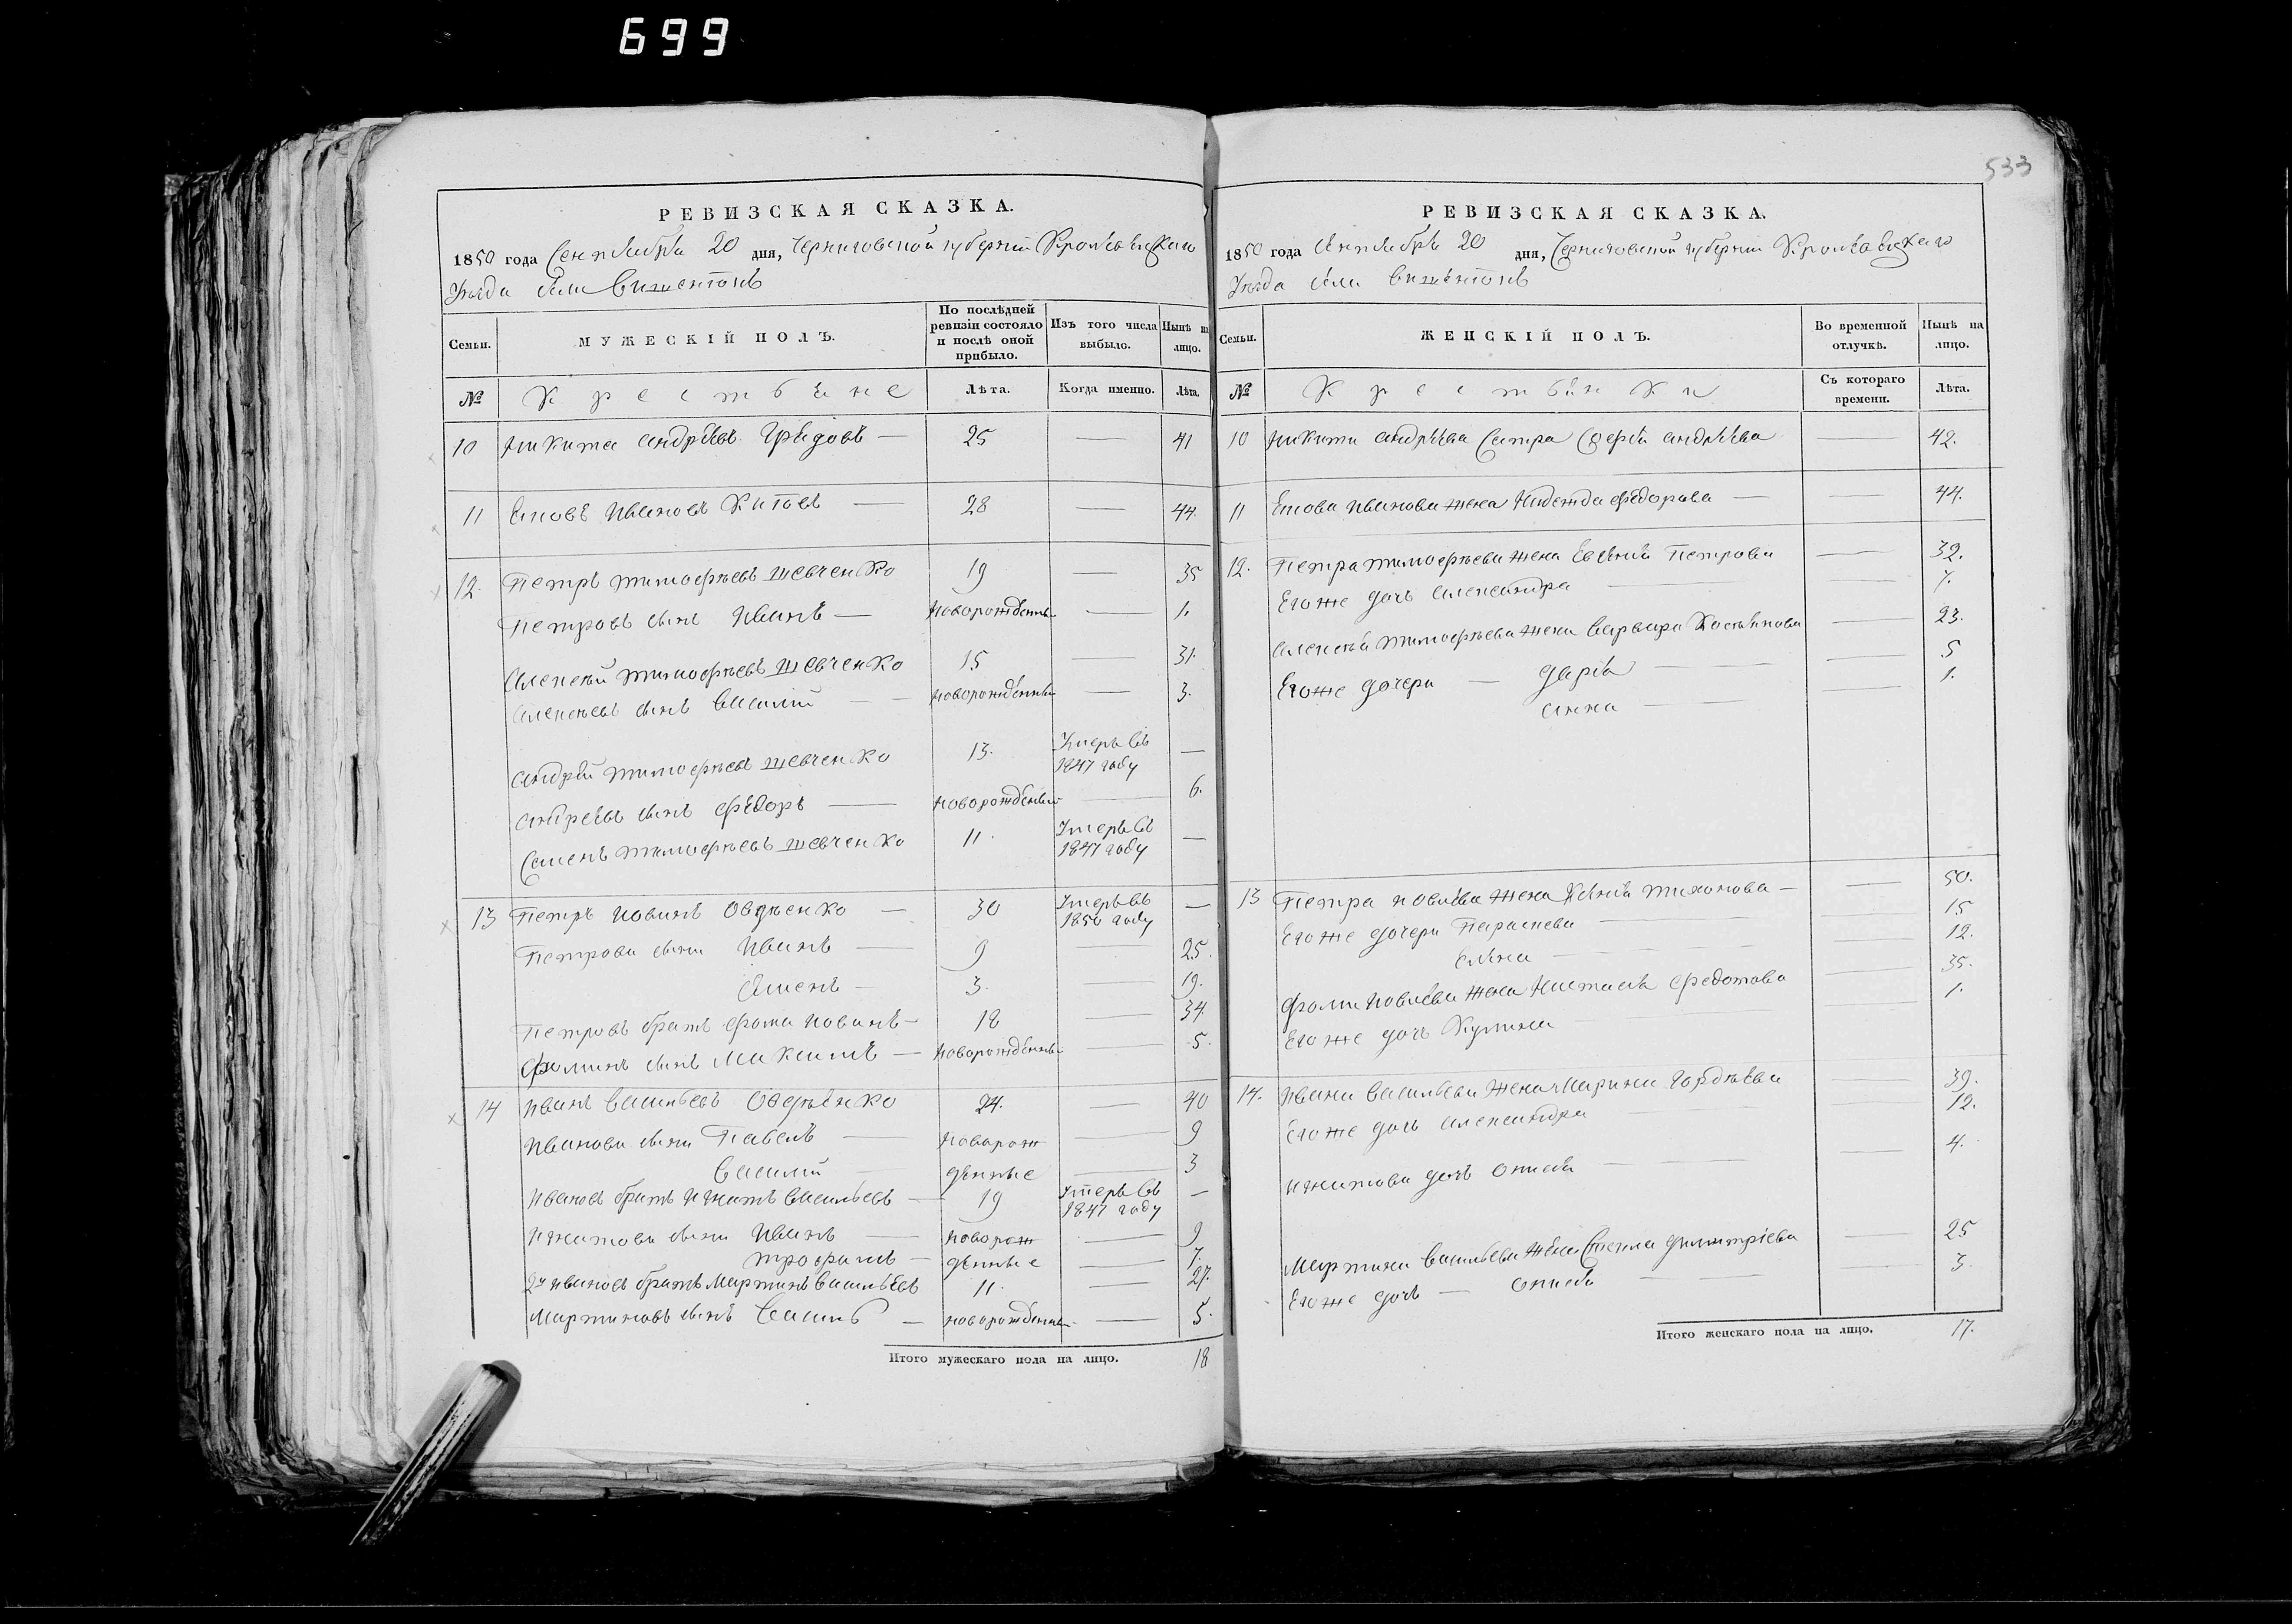 699
533
РЕВИЗСКАЯ СКАЗКА.
1850 года Сентября 20 дня, Черниговской губернии Кролевецкаго
Уезда села
Семьи. МУЖЕСКІЙ ПОЛЪ. По послѣдней ревизіи состояло и послѣ оной прибыло. Изъ того числа выбыло. Нынѣ на лицо.
№ Крестьяне Лѣта. Когда именно. Лѣта.
10 Никита Андреевъ — 25 — 41
11 Иововъ Ивановъ Китовъ — 28 — 44.
12. Петръ Тимофѣевъ Шевченко 19 — 35
Петровъ сынъ Иванъ — новорожденный — 1.
Алексѣй Тимофѣевъ Шевченко 15 — 31.
Алексѣевъ сынъ Василій — новорожденный — 3.
Андрей Тимофѣевъ Шевченко 13. Умеръ въ 1847 году —
Андреевъ сынъ Федоръ — новорожденный — 6.
Семенъ Тимофѣевъ Шевченко 11. Умеръ въ 1847 году —
13 Петръ Овдѣенко — 30 Умеръ въ 1850 году —
Петрова сыны Иванъ — 9 — 25.
Семенъ — 3. — 19.
Петровъ братъ Фома — 18 — 34
Фоминъ сынъ Максимъ — новорожденный — 5.
14 Иванъ Васильевъ Овдѣенко 24. — 40
Иванова сыны Павелъ — новорож — 9
Василій — денные — 3
Ивановъ братъ Игнатъ Васильевъ — 19 Умеръ въ 1847 году —
Игнатова сыны Иванъ — новорож — 9
Трофимъ — денные — 7.
2й Ивановъ братъ Мартинъ Васильевъ 11. — 27.
Мартиновъ сынъ — новорожденный — 5.
Итого мужескаго пола на лицо. 18
РЕВИЗСКАЯ СКАЗКА.
1850 года Сентября 20 дня, Черниговской губернии Кролевецкаго
Уезда села
Семьи. ЖЕНСКІЙ ПОЛЪ. Во временной отлучкѣ. Нынѣ на лицо.
№ Крестьянки Съ котораго времени. Лѣта.
10 Никити Андреева Сестра Андреева — 42.
11 Иванова жена Надежда Федорова — — 44.
12. Петра Тимофѣева жена Евгенія Петрова — 32.
Его же дочь Александра — — 7.
Алексея Тимофѣева жена Варвара — 23.
Его же дочери — Дарія — — 5
Анна — — 1.
13 Петра жена Ксенія Тихонова — — 50.
Его же дочери Параскева — — 15
Елена — — 12.
Фомы жена Настасія Федотова — 35.
Его же дочь Кулина — — 1.
14. Ивана Васильева жена Марина Гордѣева — 39.
Его же дочь Александра — — 12.
Игнатова дочь — — 4.
Мартина Васильева жена Дмитріева — 25
Его же дочь — — — 3.
Итого женскаго пола на лицо. 17.